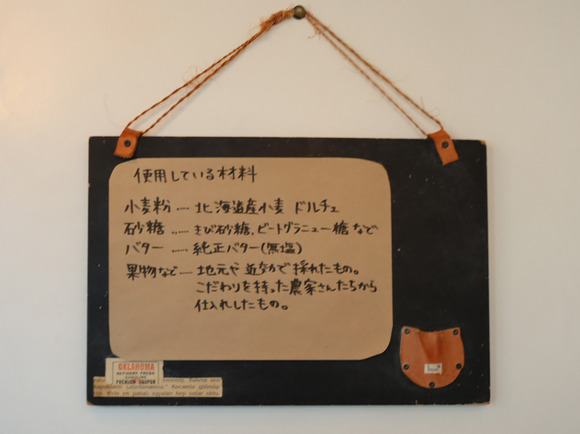 使用している材料
小麦粉 …… 北海道産小麦 ドルチェ
砂糖 …… きび砂糖、ビートグラニュー糖 など
バター …… 純正バター(無塩)
果物など… 地元や近なかで採れたもの。
こだわりを持った農家さんたちから
仕入れしたもの。
OKLAHOMA
REFINERY FRESH
GASOLINE
PREMIUM COUPON